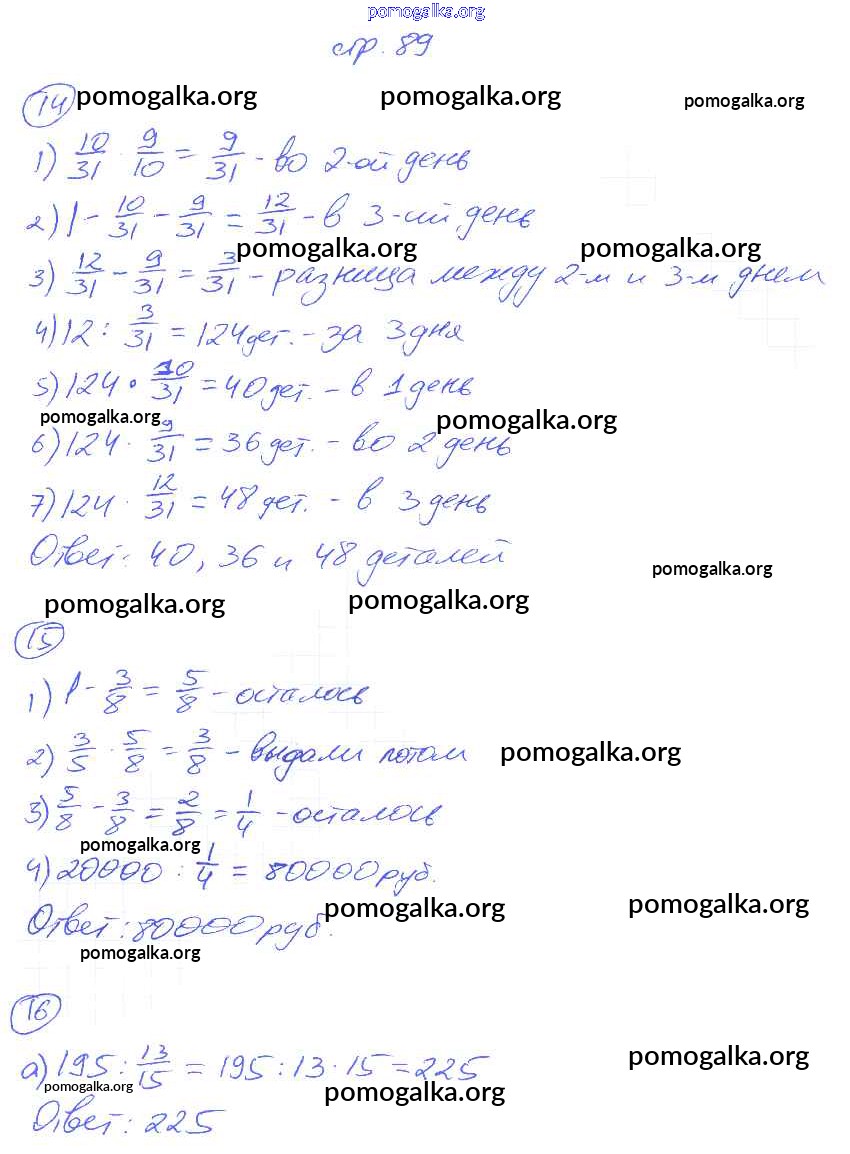 pomogalka.org
стр. 89
14 pomogalka.org pomogalka.org pomogalka.org
1) 10/31 · 9/10 = 9/31 - во 2-ой день
2) 1 - 10/31 - 9/31 = 12/31 - в 3-ий день
pomogalka.org pomogalka.org
3) 12/31 - 9/31 = 3/31 - разница между 2-м и 3-м днем
4) 12 : 3/31 = 124 дет. - за 3 дня
5) 124 · 10/31 = 40 дет. - в 1 день
pomogalka.org pomogalka.org
6) 124 · 9/31 = 36 дет. - во 2 день
7) 124 · 12/31 = 48 дет. - в 3 день
Ответ: 40, 36 и 48 деталей
pomogalka.org
pomogalka.org pomogalka.org
15
1) 1 - 3/8 = 5/8 - осталось
2) 3/5 · 5/8 = 3/8 - выдали потом pomogalka.org
3) 5/8 - 3/8 = 2/8 = 1/4 - осталось
pomogalka.org
4) 20000 : 1/4 = 80000 руб.
pomogalka.org pomogalka.org
Ответ: 80000 руб.
pomogalka.org
16
а) 195 : 13/15 = 195 : 13 · 15 = 225 pomogalka.org
pomogalka.org pomogalka.org
Ответ: 225